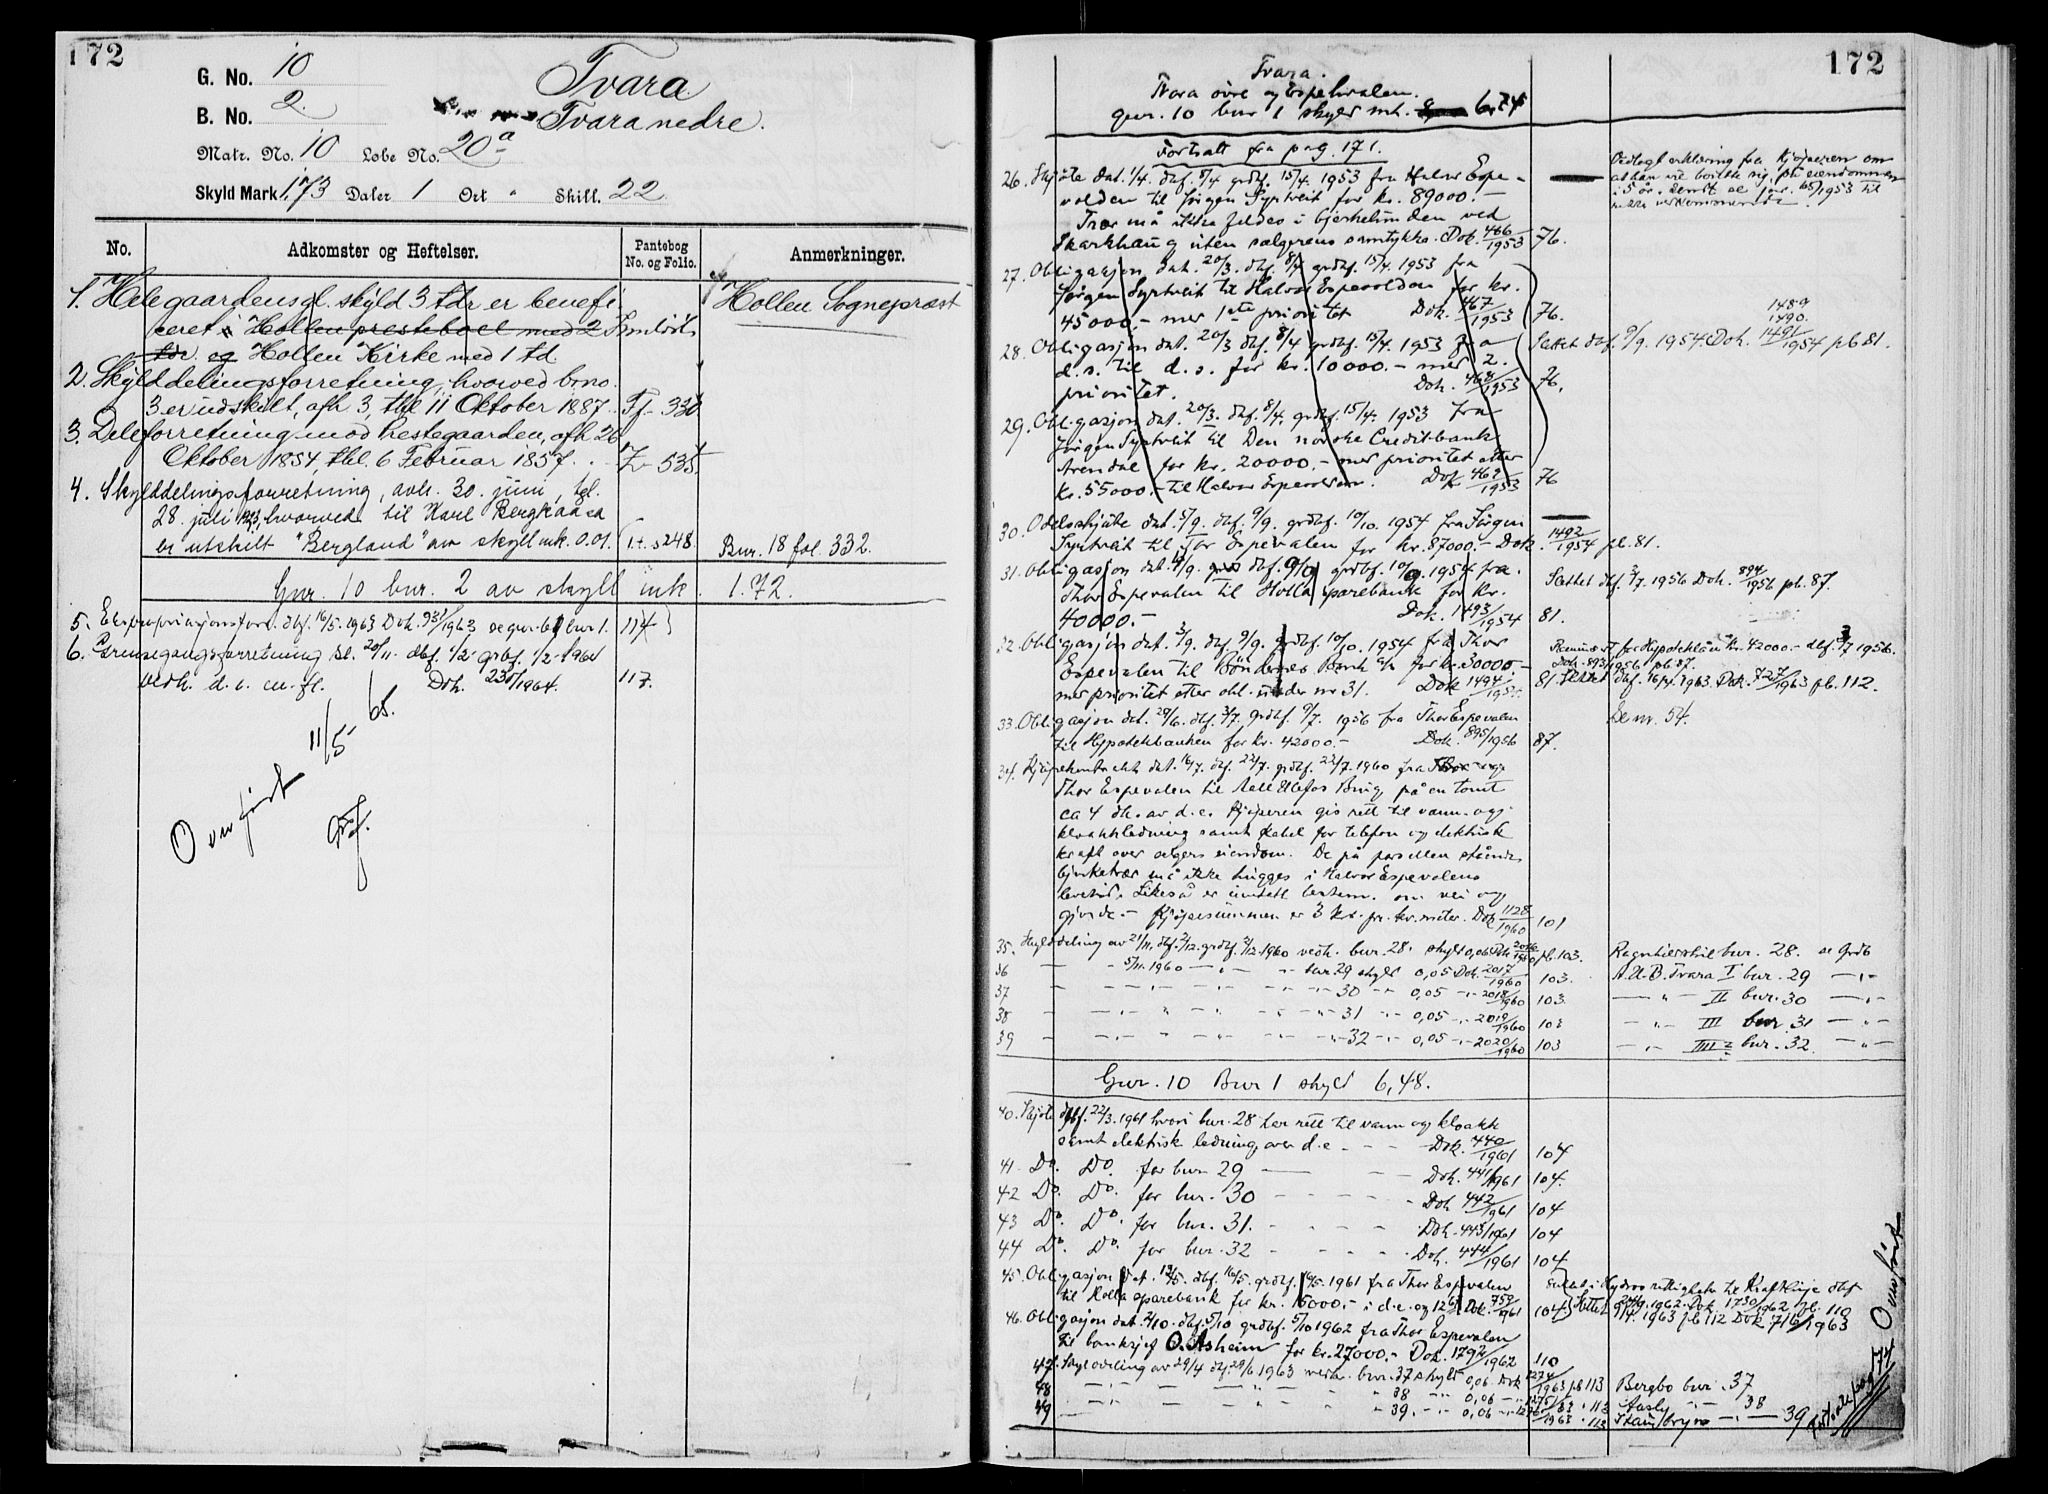 172
G. No. 10
B. No. 2.
Tvara
Tvara nedre.
Matr. No. 10 Løbe No. 20a
Skyld Mark 1,73 Daler 1 Ort " Skill. 22
No. Adkomster og Heftelser. Pantebog No. og Folio. Anmerkninger.
1. Hele gaardens gl. skyld 3 tdr er benefi- Hollen Sognepræst
ceret Hollen presteboel med 2
tdr og Hollen Kirke med 1 td.
2. Skylddelingsforretning, hvorved b.no.
3 er udskilt, afh 3, thl 11 Oktober 1887.
3. Deleforretning mod Prestegaarden, afh 26
Oktober 1854, thl. 6 Februar 1857. 535
4. Skylddelingsforretning, avh. 30. juni, tgl.
28. juli 1923, hvorved til Karl Bergkaasa
er utskilt "Bergland" av skyld mk. 0.01. 248. Bnr. 18 fol. 332.
Gnr. 10 bnr. 2 av skyld mk. 1.72.
5. Ekspropriasjonsforr. dbf. 16/5.1963 Dok. 931/1963 se gnr. 61 bnr 1. 114
6. Grensegangsforretning 20/11. dbf. 1/2 grbf. 1/2-1964
vedk. d.e. m. fl. Dok. 230/1964. 117.
Overført 11/5 65.
172
Tvara.
Tvara øvre og Espehvalen.
gnr. 10 bnr 1 skyld mk. 6.74
Fortsatt fra pag. 171.
26. Skjøte dat. 1/4. dbf. 8/4 grdbf. 15/4. 1953 fra Halvor Espe-
volden til Jørgen Syrtveit for kr. 89000.-
Trær må ikke feldes i bjerkelunden ved
Skarkhaug uten sælgerens samtykke. Dok. 466/1953 76.
Vedlagt erklæring fra kjøperen om
at han vil bosette sig på eiendommen
i 5 år.
27. Obligasjon dat. 20/3. dbf. 8/4 grdbf. 15/4. 1953 fra
Jørgen Syrtveit til Halvor Espevolden for kr.
45000.- mer 1ste prioritet Dok. 467/1953 76.
1489
1490.
28. Obligasjon dat. 20/3 dbf. 8/4 grdbf. 15/4. 1953 fra Slettet dbf. 9/9. 1954. Dok. 1491/1954 pb 81.
d.s. til d.s. for kr. 10000.- mer 2.
prioritet. Dok. 468/1953 76.
29. Obligasjon dat. 20/3. dbf. 8/4. grdbf. 15/4. 1953 fra
Jørgen Syrtveit til Den norske Creditbank
Arendal for kr. 20000.- mer prioritet etter
kr. 55000.- til Halvor Espevolden. Dok 469/1953 76
30. Odelsskjøte dat. 5/9. dbf. 9/9. grdbf. 10/10. 1954 fra Jørgen
Syrtveit til Tor Espevalen for kr. 87000.- Dok. 1492/1954 pb. 81.
31. Obligasjon dat. /9. dbf. 9/9 grdbf. 10/9. 1954 fra Slettet dbf. 3/7. 1956 Dok. 894/1956 pb. 87.
Thor Espevalen til Holla sparebank for kr.
40000.- Dok. 1493/1954 81.
32. Obligasjon dat. 3/9. dbf. 9/9. grdbf. 10/10. 1954 fra Thor
Espevalen til Bøndernes Bank for kr. 30000.-
mer prioritet etter obl. under nr 31. Dok 1494/1954 81.
for Hypoteklån kr. 42000.- dbf. 3/7 1956.
Dok. 893/1956 pb 87.
Slettet dbf. 16/4. 1963. Dok. 727/1963 pb. 112.
33. Obligasjon dat. 29/6. dbf. 3/7. grdbf. 9/7. 1956 fra Thor Espevalen Se nr. 54.
til Hypotekbanken for kr. 42000.- Dok. 895/1956 87.
34. Kjøpekontrakt dat. 16/7. dbf. 22/7. grdbf. 22/7. 1960 fra
Thor Espevalen til Aall Ulefos Brug på en tomt
ca 4 da. av d.e. Kjøperen gis rett til vann- og
kloakkledning samt kabel for telefon og elektrisk
kraft over selgers eiendom. De på parsellen stående
bjerketrær må ikke hugges i Halvor Espevolens
levetid. Likeså er inntatt bestem. om vei og
gjerde.- Kjøpesummen er 3 kr. pr. kv. meter. Dok 1128/1960 101
35. Skylddeling av 21/11. dbf. 2/12. grdbf. 2/12. 1960 vedk. bnr. 28. skyld 0,06 Dok 2016/1960 pb. 103. bnr. 28. se Grdb
36 — " 5/11. 1960 — " — bnr. 29 skyld 0,05 Dok. 2017/1960 103. A.U.B. Tvara I bnr. 29 — " —
37 — " — 30 — 0,05 — " — 2018/1960 103. — " — II bnr. 30 — " —
38 — " — 31 — 0,05 — " — 2019/1960 103 — " — III bnr. 31 — " —
39 — " — 32 — 0,05 — " — 2020/1960 103 — " — IIII bnr. 32. — " —
Gnr. 10 Bnr 1 skyld 6,48.
40. Skjøte dbf. 22/3. 1961 hvori bnr. 28 har rett til vann og kloakk
samt elektrisk ledning over d.e. - - - Dok. 440/1961 104
41 - Do. Do. for bnr 29 — Dok. 441/1961 104.
42 Do. Do. for bnr. 30 - - - Dok. 442/1961 104
43 Do. Do. for bnr. 31. - - - Dok. 443/1961 104
44 Do. Do. for bnr. 32 - - - Dok. 444/1961 104
45. Obligasjon dat. 13/5. dbf. 16/5. grdbf. 16/5. 1961 fra Thor Espevalen
til Holla sparebank for kr. 15000.- i d.e. og Dok. 759/1961 104
rettigheter til Kraftlinje dbf
24/9. 1962. Dok. 1730/1962 pb. 110
Slettet 9/4. 1963 pb 112 Dok. 716/1963
46. Obligasjon dat. 2/10. dbf. 5/10 grdbf. 5/10 1962 fra Thor Espevalen
til banksjef O. Asheim for kr. 27000.- Dok. 1792/1962 110
47. Skylddeling av 29/4 dbf. 29/6 1963 vedk. bnr. 37 skyld 0,06 Dok 1274/1963 pb 113 Bergbo bnr. 37
48 — " — 38 — " — 0,06 — " — 1275/63 " 113 Aasly — " — 38
49 — " — 39. — " — 0,06 — " — 1276/1963 " 113 — " — 39
Overført